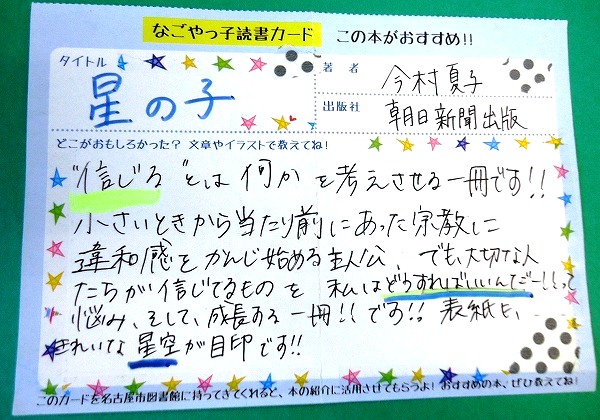 なごやっ子読書カード この本がおすすめ!!
タイトル
星の子
著者
今村夏子
出版社
朝日新聞出版
どこがおもしろかった？ 文章やイラストで教えてね！
"信じる"とは何かを考えさせる一冊です!!
小さいときから当たり前にあった宗教に
違和感をかんじ始める主人公、でも、大切な人
たちが信じてるものを 私はどうすればいいんだー!!って
悩み、そして、成長する一冊!!です!! 表紙も、
きれいな星空が目印です!!
このカードを名古屋市図書館に持ってきてくれると、本の紹介に活用させてもらうよ！おすすめの本、ぜひ教えてね！